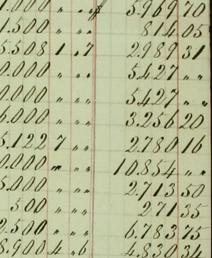 1.000 " " 5.969 70
1.500 " " 814 05
5.508 1 " 7 2.989 31
0.000 " " 5.427 "
0.000 " " 5.427 " "
6.000 " " 3.256 20
5.122 7 " " 2.780 16
0.000 " " 10.854 " "
5.000 " " 2.713 50
500 " " 271 35
2.500 " " 6.783 75
8.900 4 " 6 4.830 34